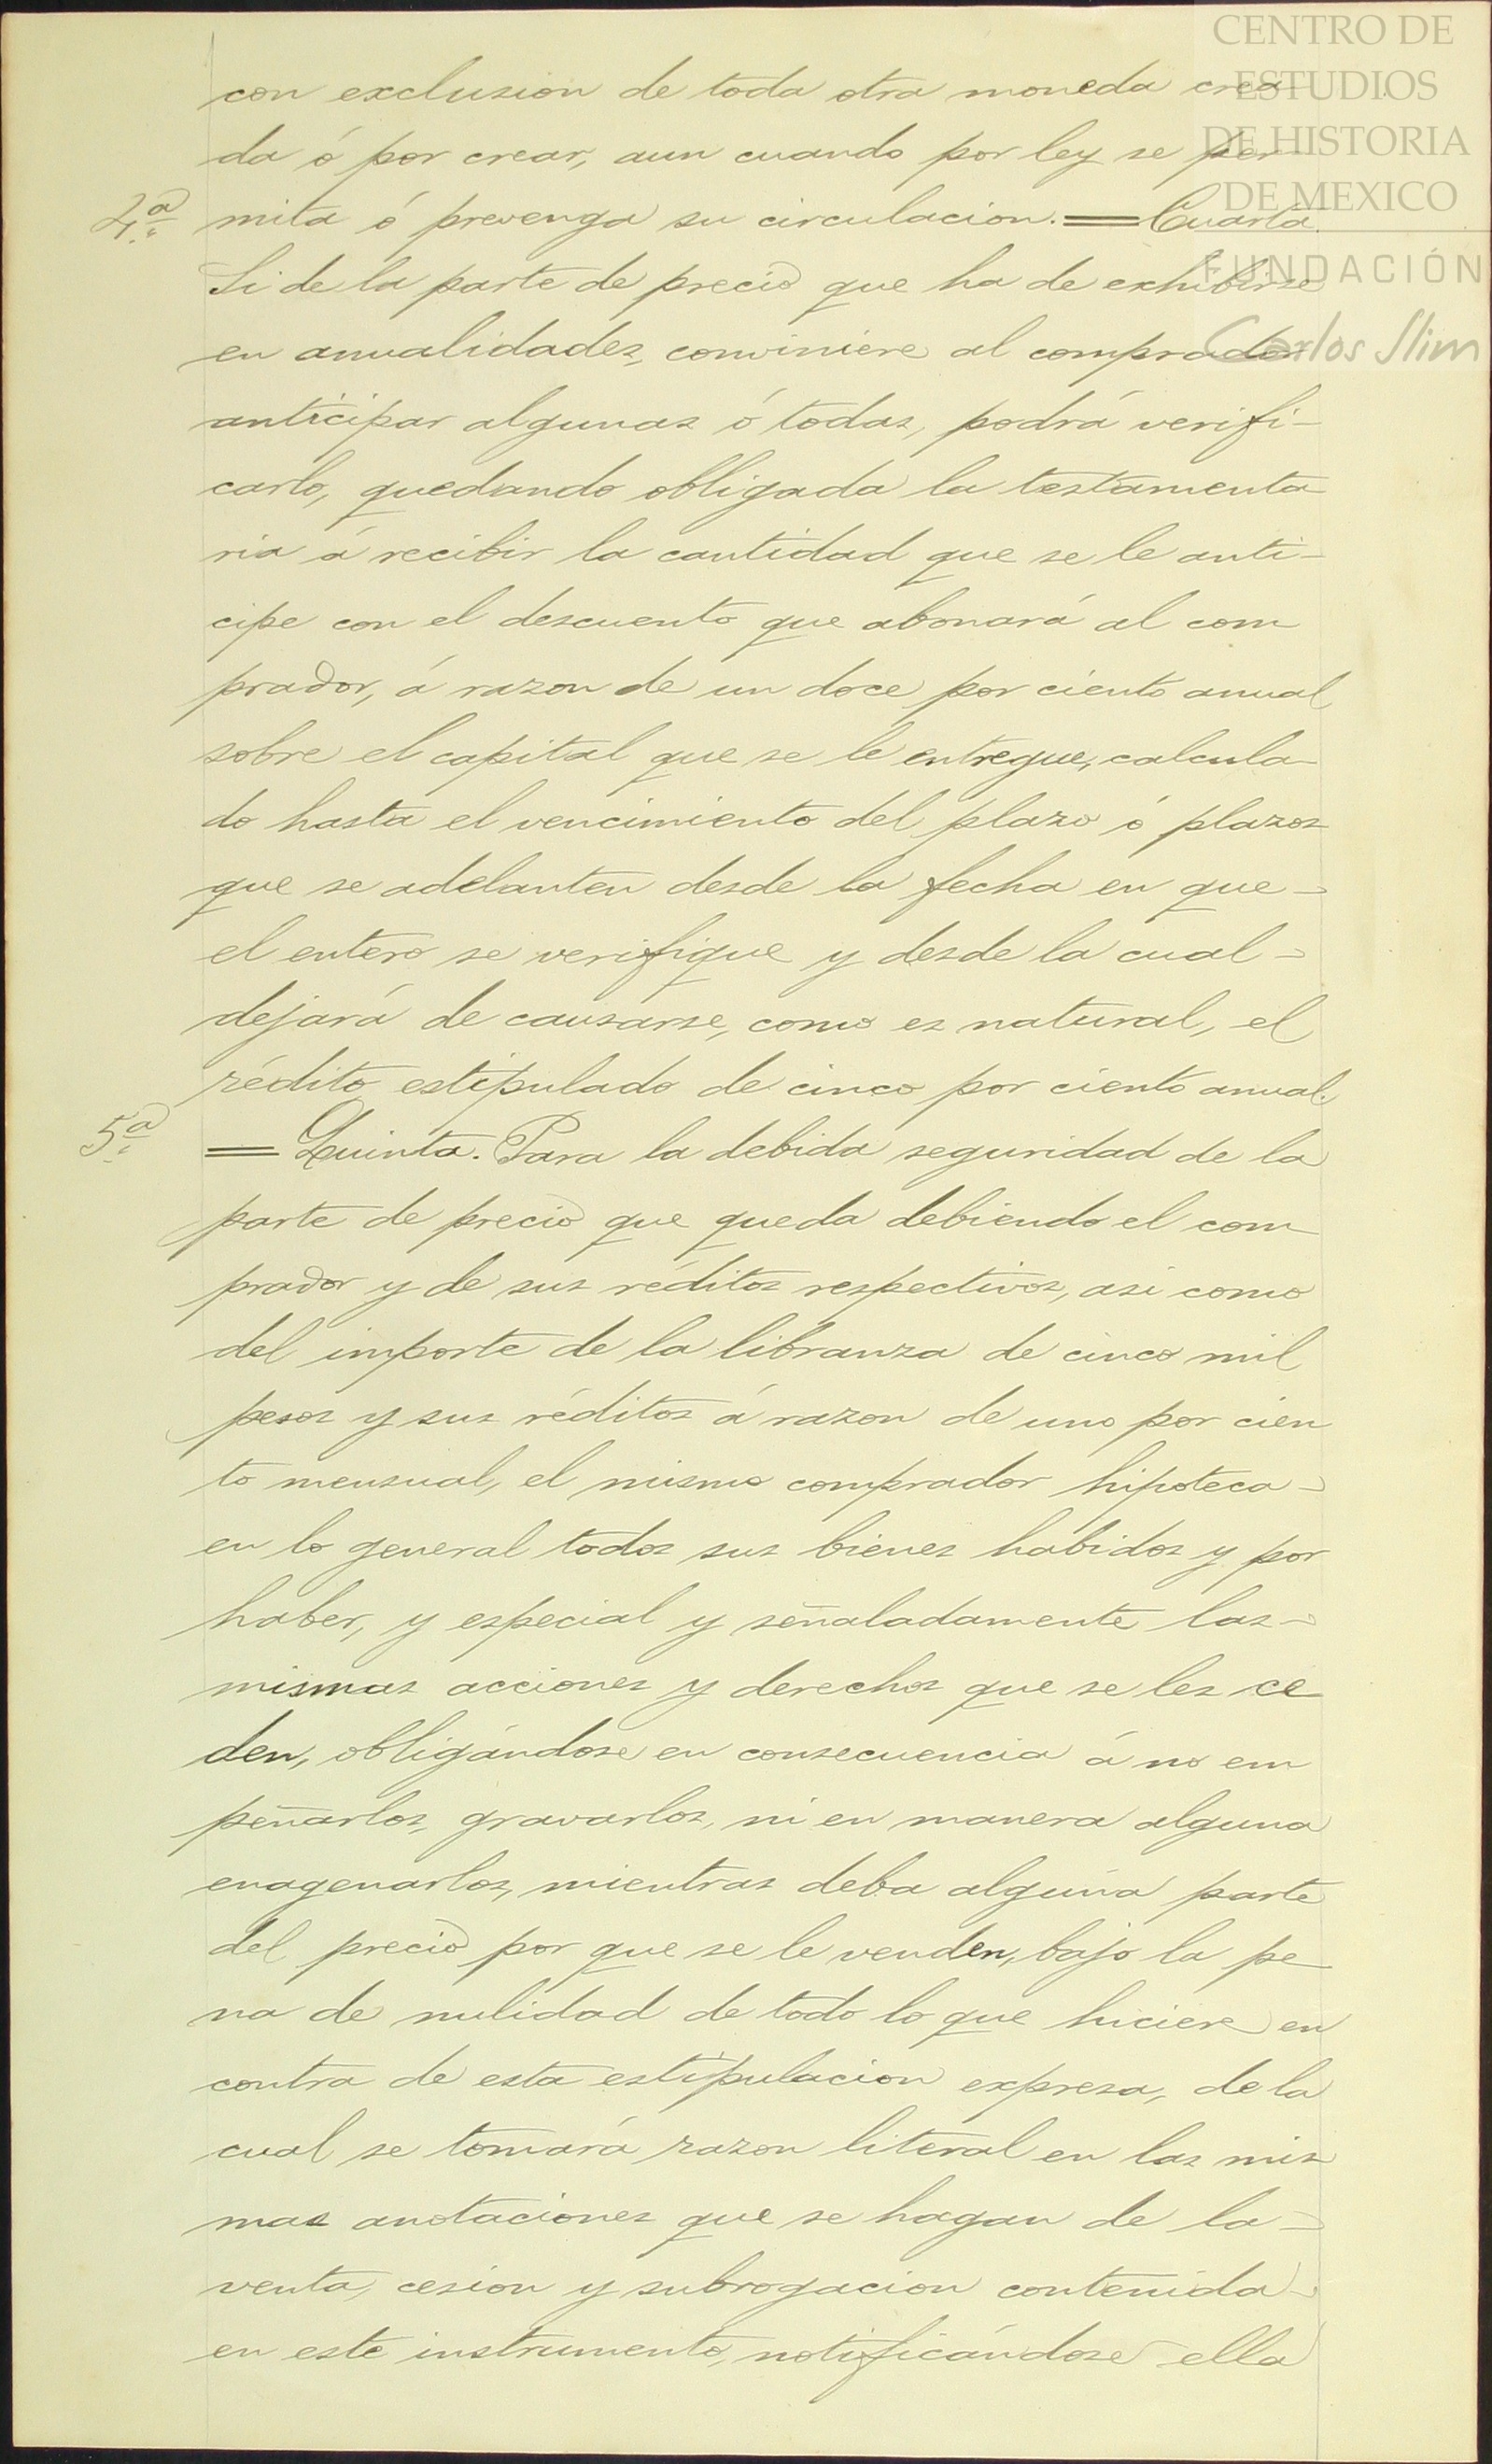 CENTRO DE
ESTUDIOS
DE HISTORIA
DE MEXICO
FUNDACIÓN
Carlos Slim
con exclusion de toda otra moneda crea-
da ó por crear, aun cuando por ley se per-
4.ª mita ó prevenga su circulacion. = Cuarta.
Si de la parte de precio que ha de exhibirse
en anualidades, conviniere al comprador
anticipar algunas ó todas, podrá verifi-
carlo, quedando obligada la testamenta
ria á recibir la cantidad que se le anti-
cipe con el descuento que abonará al com
prador, á razon de un doce por ciento anual
sobre el capital que se le entregue, calcula-
do hasta el vencimiento del plazo ó plazos
que se adelanten desde la fecha en que-
el entero se verifique y desde la cual-
dejará de causarse, como es natural, el
rédito estipulado de cinco por ciento anual.
5.ª = Quinta. Para la debida seguridad de la
parte de precio que queda debiendo el com
prador y de sus réditos respectivos, asi como
del importe de la libranza de cinco mil
pesos y sus réditos á razon de uno por cien
to mensual, el mismo comprador hipoteca-
en lo general todos sus bienes habidos y por
haber, y especial y señaladamente las-
mismas acciones y derechos que se les ce
den, obligándose en consecuencia á no em
peñarlos, gravarlos, ni en manera alguna
enagenarlos, mientras deba alguna parte
del precio por que se le venden, bajo la pe
na de nulidad de todo lo que hiciere en
contra de esta estipulacion expresa, de la
cual se tomará razon literal en las mis
mas anotaciones que se hagan de la-
venta, cesion y subrogacion contenida-
en este instrumento, notificándose ella